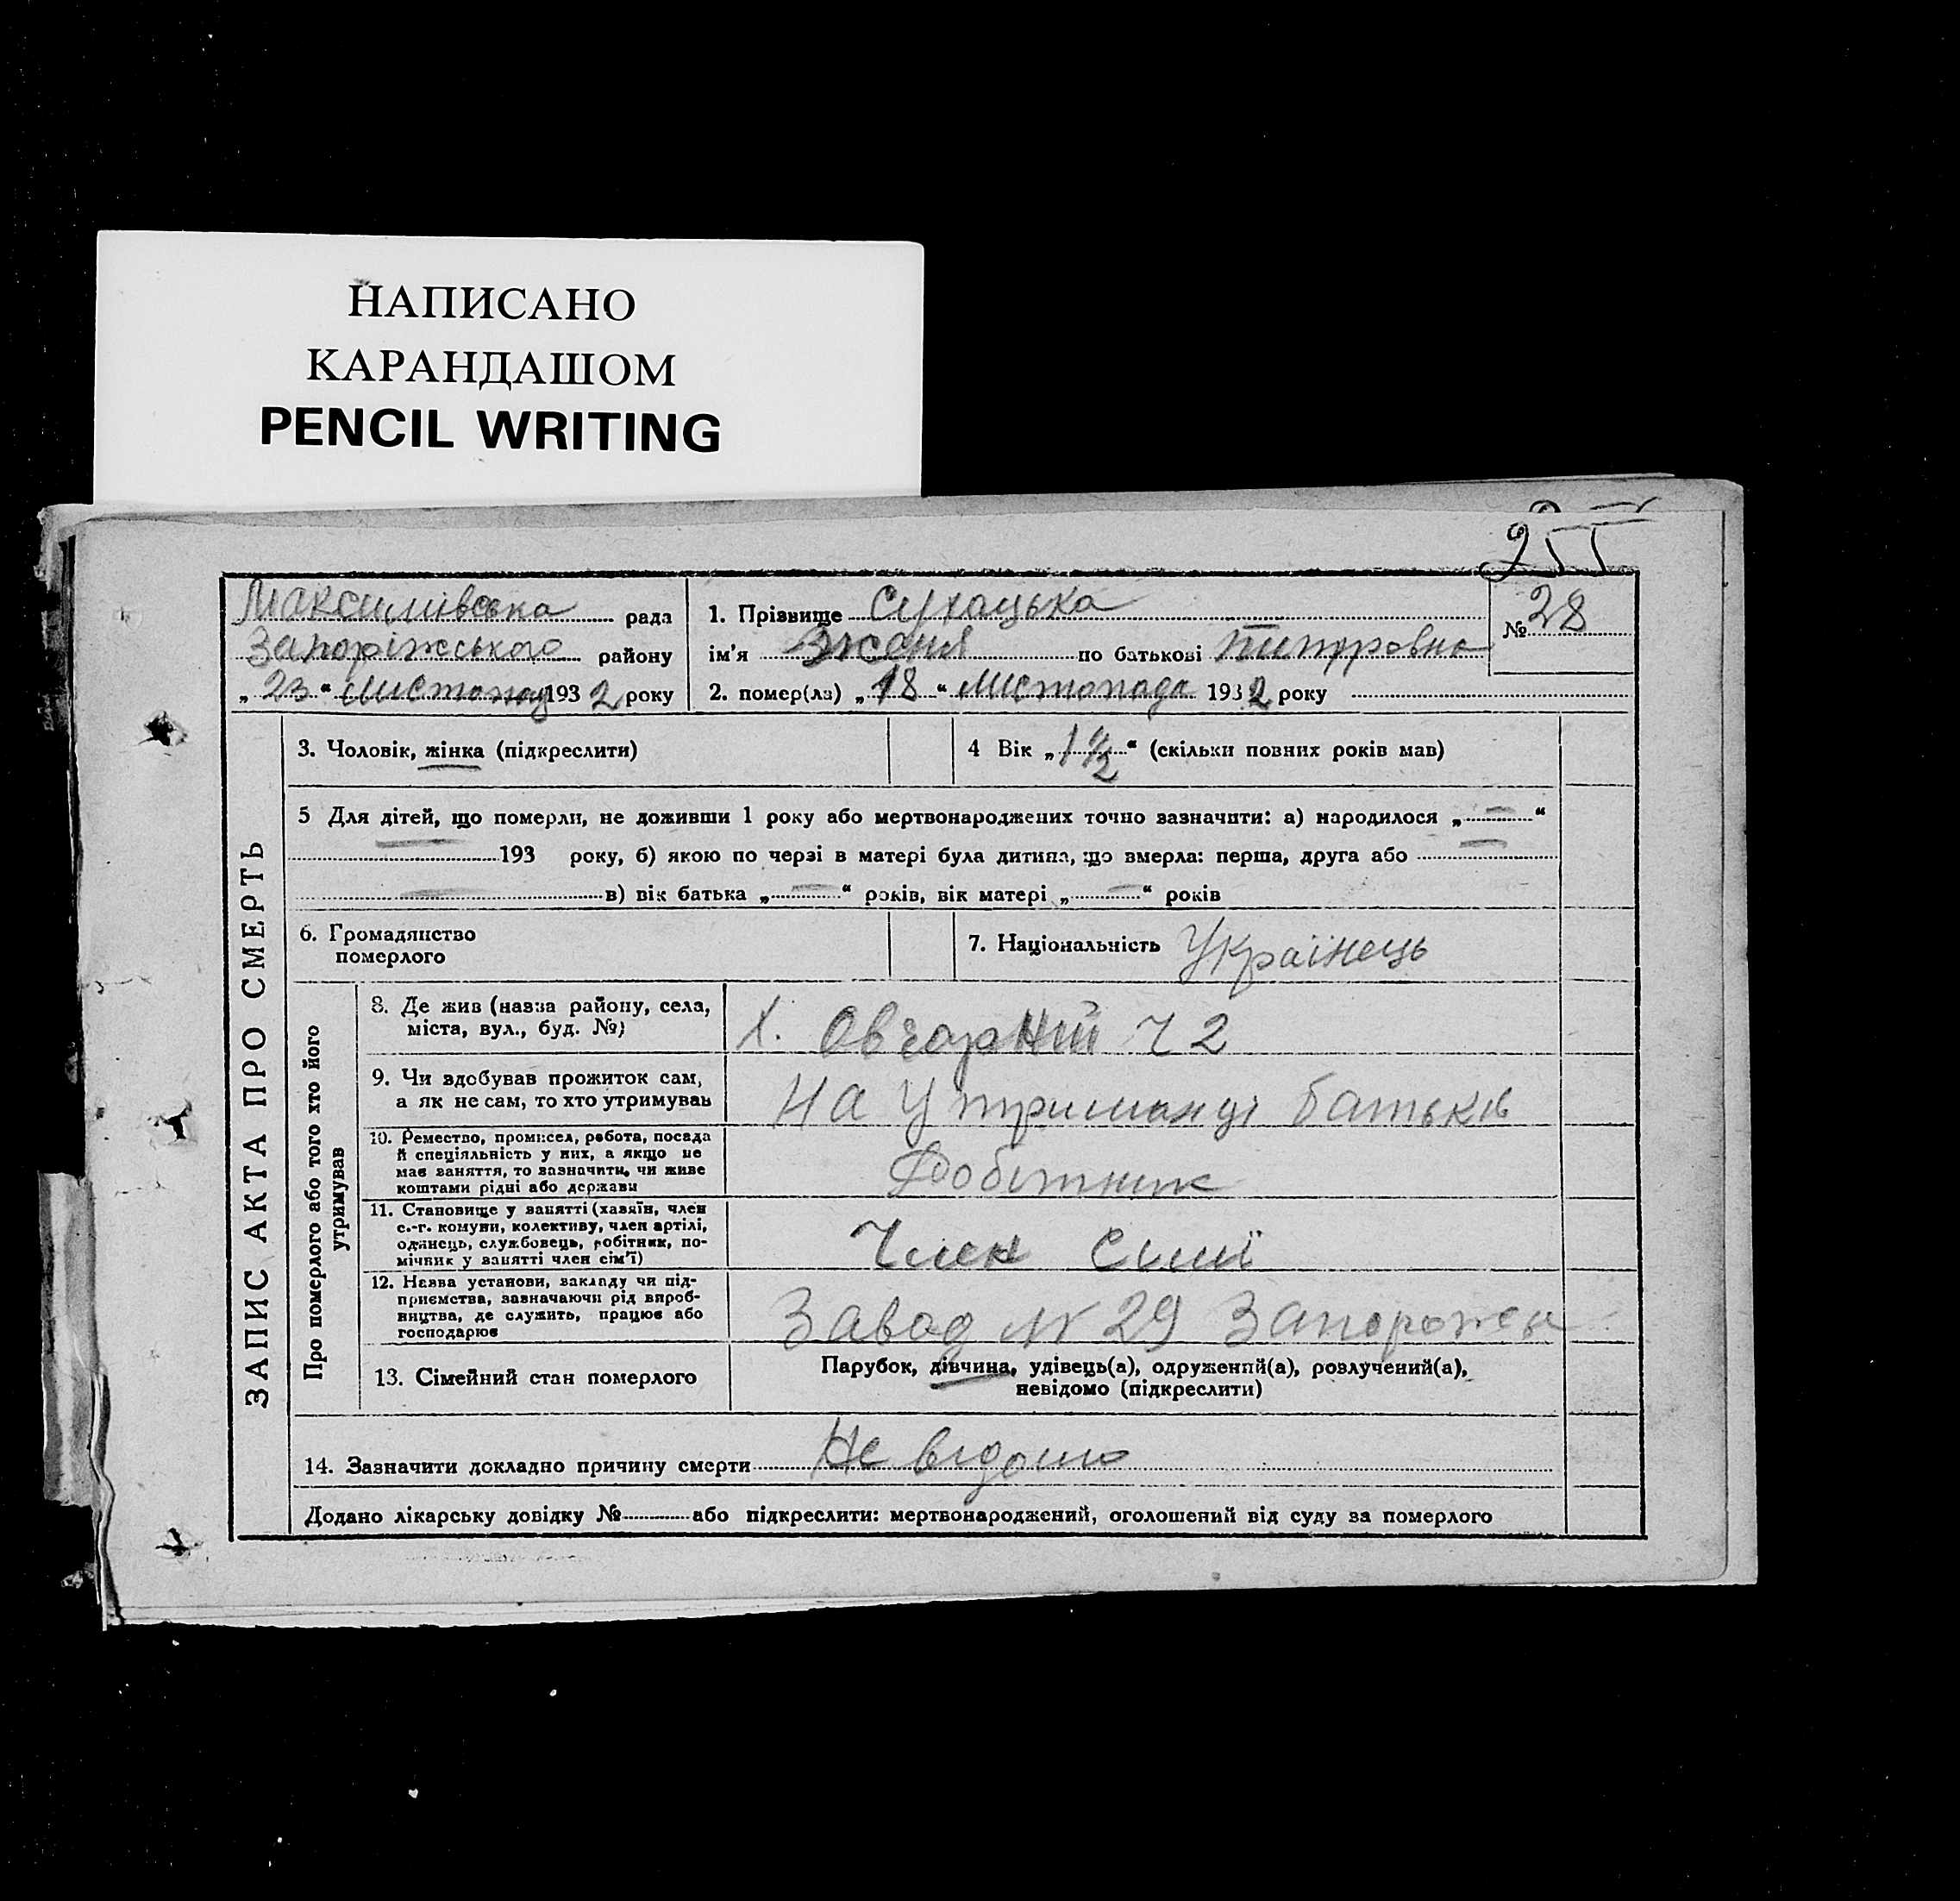 НАПИСАНО
КАРАНДАШОМ
PENCIL WRITING
255
Максимівська рада
Запоріжського району
„23“ Листопад 1932 року
1. Прізвище Сухацька
ім'я Женя по батькові Питровна
2. помер(ла) „18“ Листопада 1932 року
№ 28
ЗАПИС АКТА ПРО СМЕРТЬ
3. Чоловік, жінка (підкреслити)
4 Вік „1 1/2“ (скільки повних років мав)
5 Для дітей, що померли, не доживши 1 року або мертвонароджених точно зазначити: а) народилося „—“
193 року, б) якою по черзі в матері була дитина, що вмерла: перша, друга або —
— в) вік батька „—“ років, вік матері „—“ років
6. Громадянство
померлого
7. Національність Українець
Про померлого або того хто його
утримував
8. Де жив (назва району, села,
міста, вул., буд. №)
Х. Овчарний Ч 2
9. Чи здобував прожиток сам,
а як не сам, то хто утримував
На Утриманді батьків
10. Ремество, промисел, робота, посада
й спеціяльність у них, а якщо не
має заняття, то зазначити, чи живе
коштами рідні або держави
Робітник
11. Становище у занятті (хазяїн, член
с.-г. комуни, колективу, член артілі,
одинець, службовець, робітник, по-
мічник у занятті член сім'ї)
Член Сімї
12. Назва установи, закладу чи під-
приємства, зазначаючи рід вироб-
ництва, де служить, працює або
господарює
Завод № 29 Запорожся
13. Сімейний стан померлого
Парубок, дівчина, удівець(а), одружений(а), розлучений(а),
невідомо (підкреслити)
14. Зазначити докладно причину смерти Не відомо
Додано лікарську довідку № або підкреслити: мертвонароджений, оголошений від суду за померлого